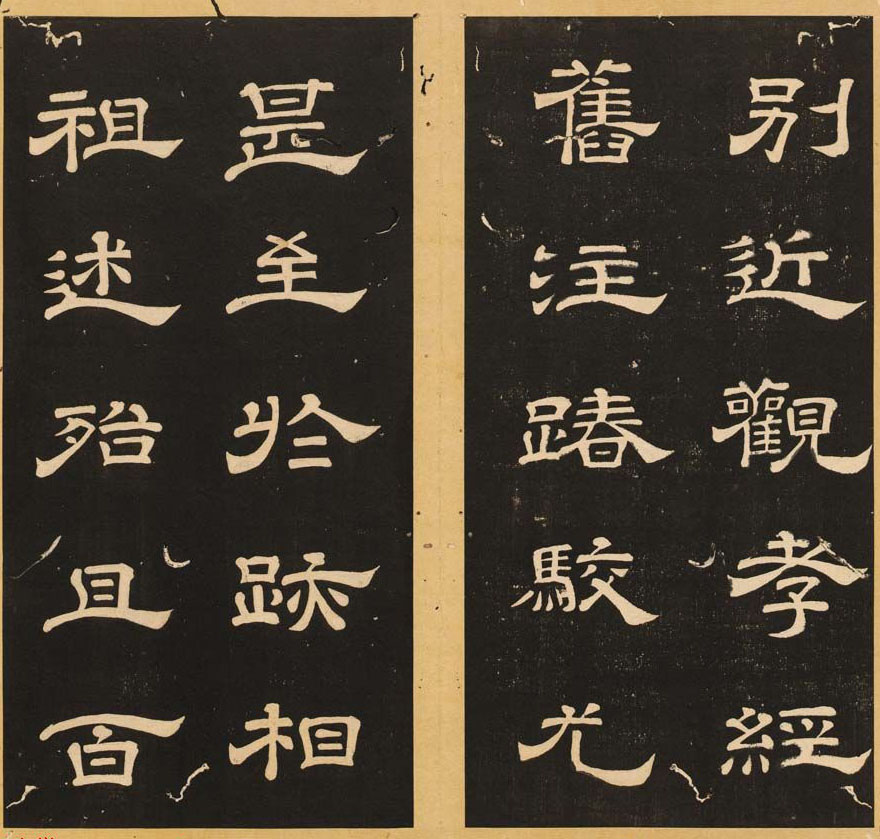 別近觀孝經
舊注踳駮尤
是至於跡相
祖述殆且百